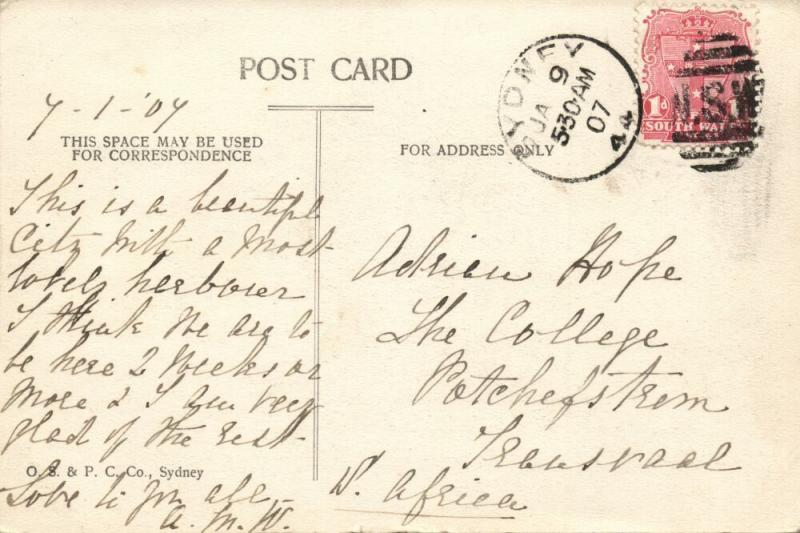 POST CARD
7-1-'07
THIS SPACE MAY BE USED
FOR CORRESPONDENCE
FOR ADDRESS ONLY
SYDNEY
JA 9
530AM
07
44
1d
SOUTH WALES
N.S.W
This is a beautiful
City with a most
lovely herbourer
I think we are to
be here 2 weeks or
more & I am very
glad of the rest
O. S. & P. C. Co., Sydney
Love to you all
A. M. W.
Adrien Hope
The College
Potchefstrom
Transvaal
S. Africa